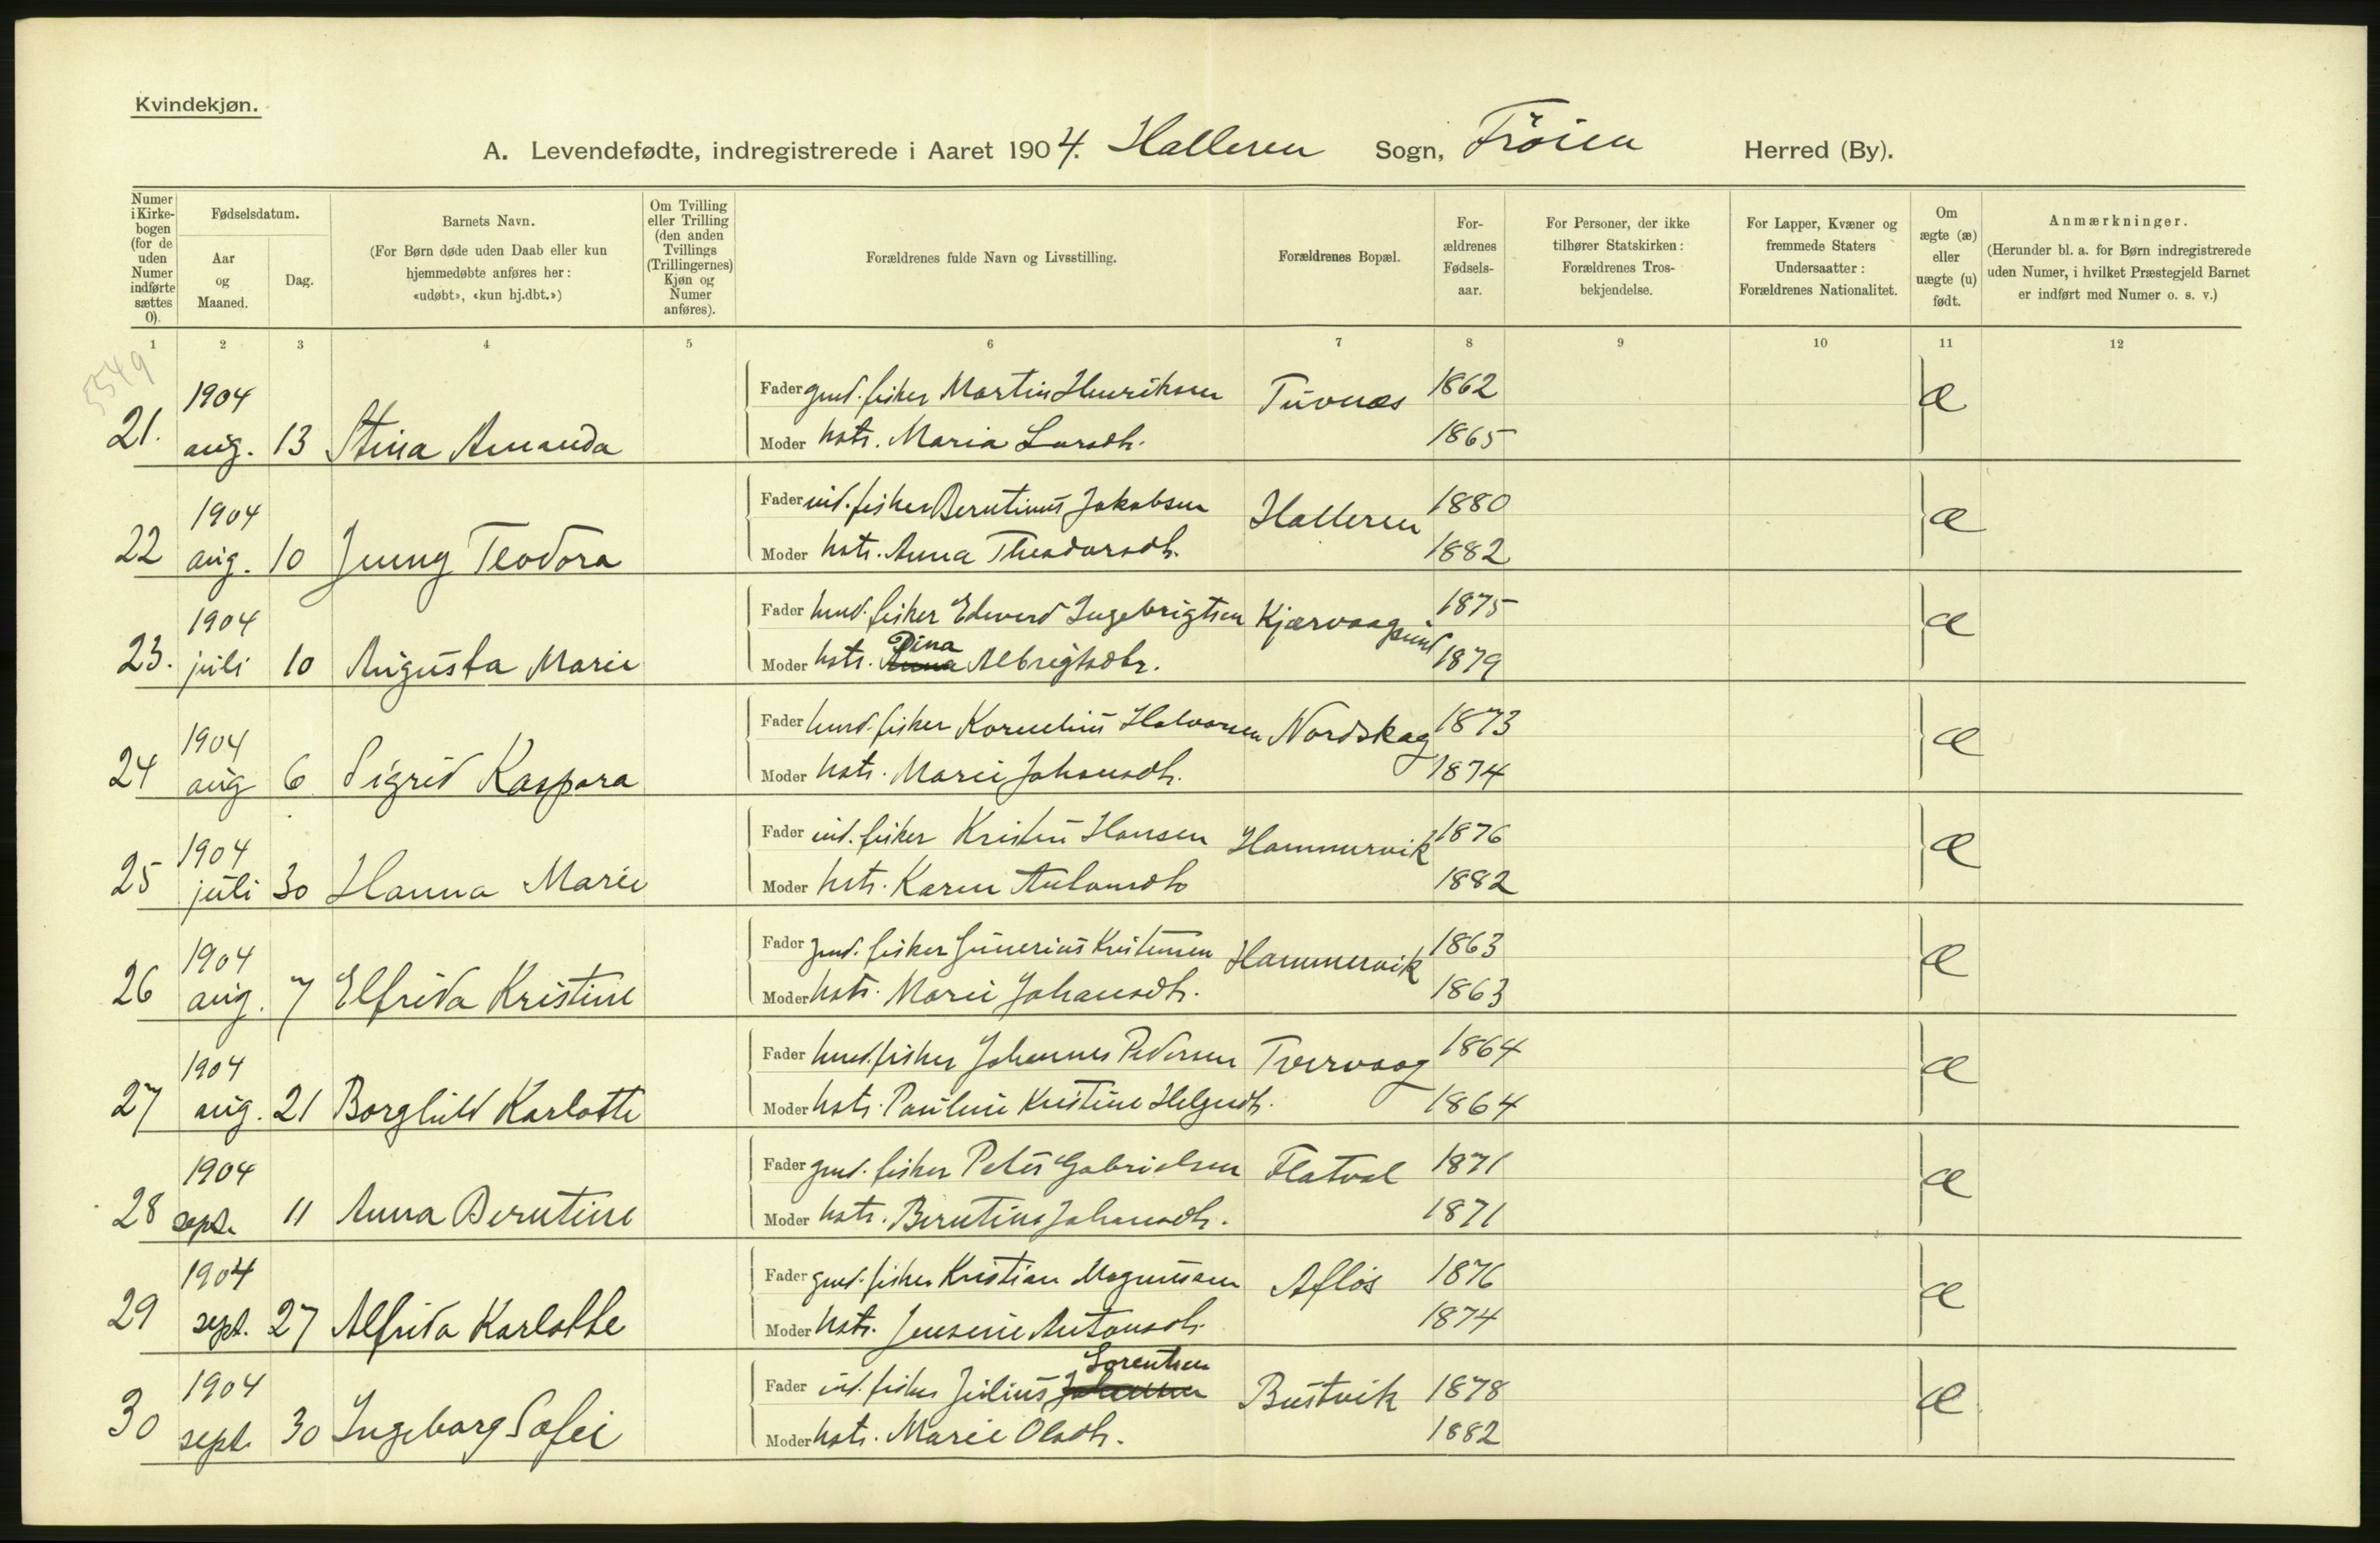 Kvindekjøn.
A. Levendefødte, indregistrerede i Aaret 1904. Halleren Sogn, Frøien Herred (By).
Numer i Kirke-bogen (for de uden Numer indførte sættes 0).
Fødselsdatum.
Aar og Maaned.
Dag.
Barnets Navn.
(For Børn døde uden Daab eller kun hjemmedøbte anføres her: «udøbt», «kun hj.dbt.»)
Om Tvilling eller Trilling (den anden Tvillings (Trillingernes) Kjøn og Numer anføres).
Forældrenes fulde Navn og Livsstilling.
Forældrenes Bopæl.
For-ældrenes Fødsels-aar.
For Personer, der ikke tilhører Statskirken: Forældrenes Tros-bekjendelse.
For Lapper, Kvæner og fremmede Staters Undersaatter: Forældrenes Nationalitet.
Om ægte (æ) eller uægte (u) født.
Anmærkninger.
(Herunder bl. a. for Børn indregistrerede uden Numer, i hvilket Præstegjeld Barnet er indført med Numer o. s. v.)
1 2 3 4 5 6 7 8 9 10 11 12
5549
1904 Fader gmd. fisker Martin Henriksen Tuvnæs 1862 æ
21. aug. 13 Stina Amanda Moder hstr. Maria Larsdtr. 1865
1904 Fader ind. fisker Berntinus Jakobsen Halleren 1880 æ
22 aug. 10 Jenny Teodora Moder hstr. Anna Theodorsdtr. 1882
1904 Fader husd. fisker Edvard Ingebrigtsen Kjærvaagsund 1875 æ
23. juli 10 Augusta Marie Moder hstr. Anna Dina Albrigtsdtr. 1879
1904 Fader husd. fisker Kornelius Halvorsen Nordskag 1873 æ
24 aug 6 Sigrid Kaspara Moder hstr. Marie Johansdtr. 1874
1904 Fader ind. fisker Kristen Hansen Hammervik 1876 æ
25 juli 30 Hanna Marie Moder hstr. Karen Antonsdtr 1882
1904 Fader gmd. fisker Kristensen Hammervik 1863 æ
26 aug. 7 Elfrida Kristine Moder hstr. Marie Johansdtr. 1863
1904 Fader husd. fisker Johannes Pedersen Tvervaag 1864 æ
27 aug. 21 Borghild Karlotte Moder hstr. Pauline Kristine Helgesdtr. 1864
1904 Fader gmd. fisker Peter Gabrielsen Flatval 1871 æ
28 sept. 11 Anna Berntine Moder hstr. Berntine Johansdtr. 1871
1904 Fader gmd. fisker Kristian Magnussen Afløs 1876 æ
29 sept. 27 Alfrida Karlotte Moder hstr. Jensine Antonsdtr. 1874
1904 Fader ind. fisker Julius Johansen Lorentsen Bustvik 1878 æ
30 sept. 30 Ingeborg Sofie Moder hstr. Marie Olsdtr. 1882